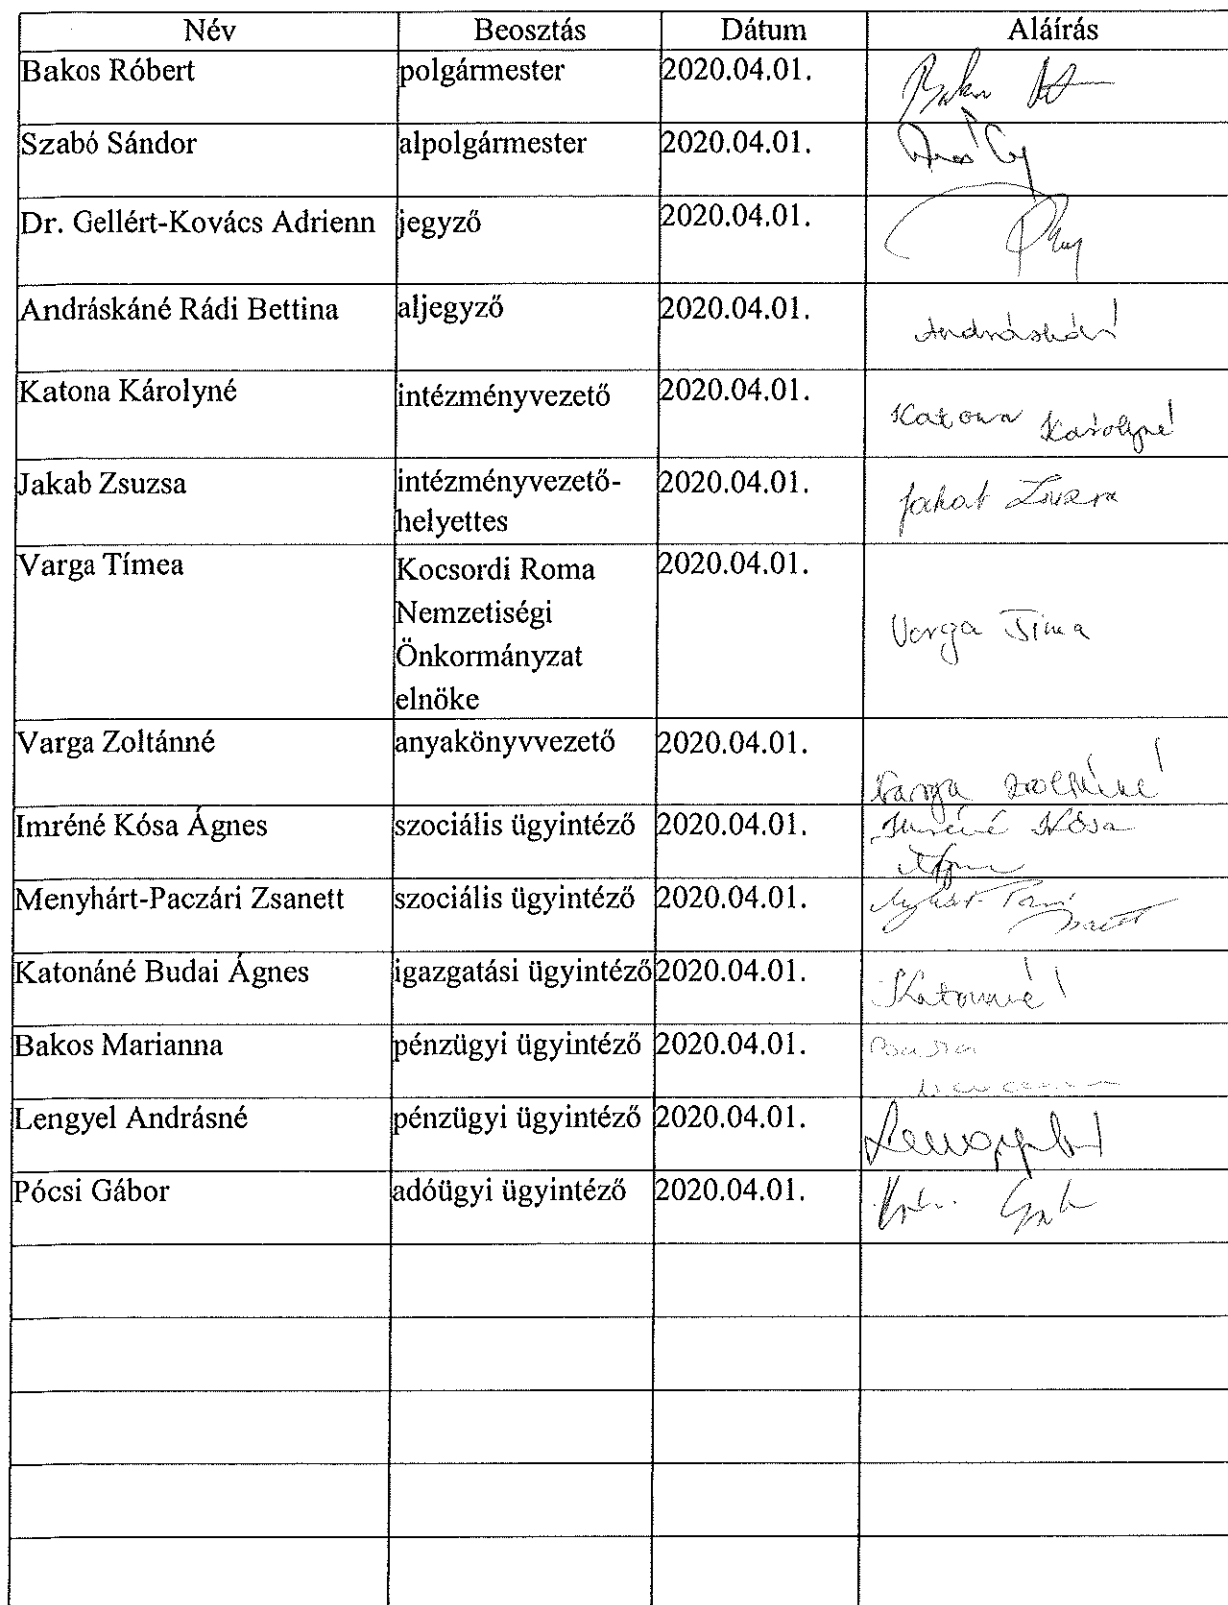 Név Beosztás Dátum Aláírás
Bakos Róbert polgármester 2020.04.01.
Szabó Sándor alpolgármester 2020.04.01.
Dr. Gellért-Kovács Adrienn jegyző 2020.04.01.
Andráskáné Rádi Bettina aljegyző 2020.04.01. Andráskáné
Katona Károlyné intézményvezető 2020.04.01. Katona Károlyné
Jakab Zsuzsa intézményvezető- 2020.04.01. Jakab Zsuzsa
helyettes
Varga Tímea Kocsordi Roma 2020.04.01.
Nemzetiségi
Önkormányzat Varga Tímea
elnöke
Varga Zoltánné anyakönyvvezető 2020.04.01. Varga Zoltánné
Imréné Kósa Ágnes szociális ügyintéző 2020.04.01. Imréné Kósa
Ágnes
Menyhárt-Paczári Zsanett szociális ügyintéző 2020.04.01.
Katonáné Budai Ágnes igazgatási ügyintéző 2020.04.01. Katonáné
Bakos Marianna pénzügyi ügyintéző 2020.04.01.
Lengyel Andrásné pénzügyi ügyintéző 2020.04.01.
Pócsi Gábor adóügyi ügyintéző 2020.04.01.